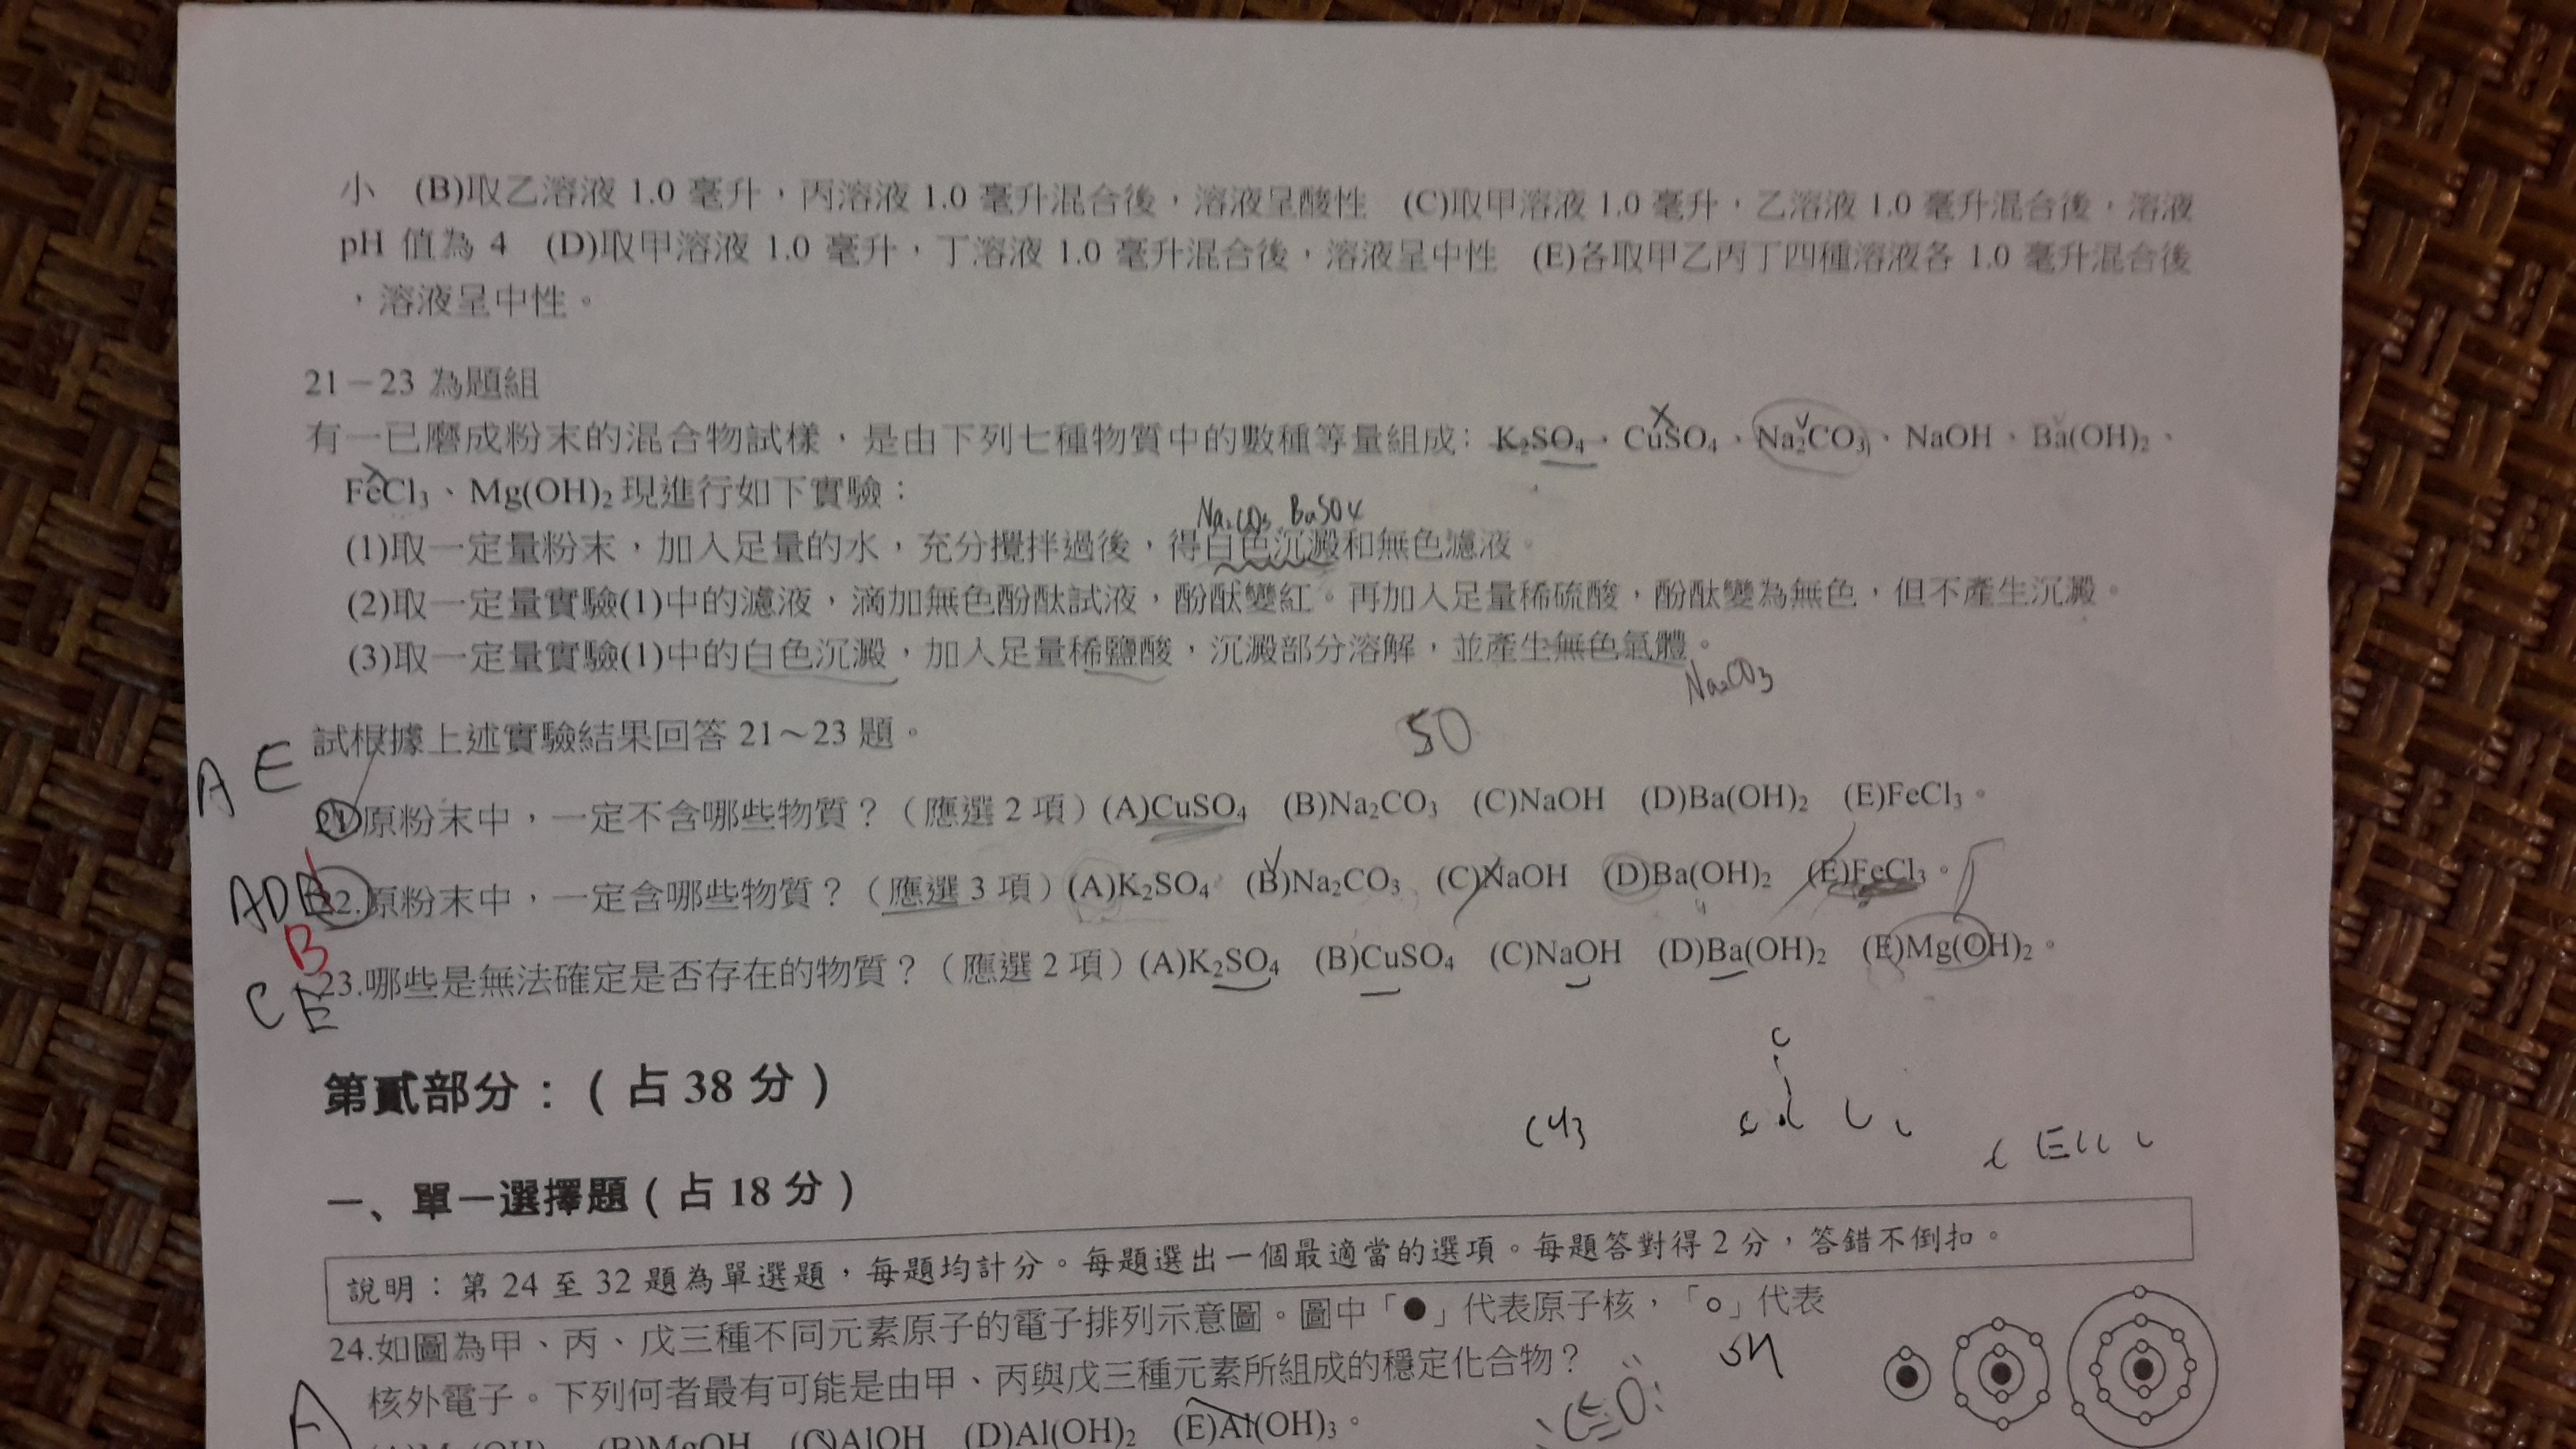 小　(B)取乙溶液 1.0 毫升，丙溶液 1.0 毫升混合後，溶液呈酸性　(C)取甲溶液 1.0 毫升，乙溶液 1.0 毫升混合後，溶液
pH 值為 4　(D)取甲溶液 1.0 毫升，丁溶液 1.0 毫升混合後，溶液呈中性　(E)各取甲乙丙丁四種溶液各 1.0 毫升混合後
，溶液呈中性。
21－23 為題組
有一已磨成粉末的混合物試樣，是由下列七種物質中的數種等量組成：K₂SO₄、CuSO₄、Na₂CO₃、NaOH、Ba(OH)₂、
FeCl₃、Mg(OH)₂ 現進行如下實驗：
Na₂CO₃ BaSO4
(1)取一定量粉末，加入足量的水，充分攪拌過後，得白色沉澱和無色濾液。
(2)取一定量實驗(1)中的濾液，滴加無色酚酞試液，酚酞變紅。再加入足量稀硫酸，酚酞變為無色，但不產生沉澱。
(3)取一定量實驗(1)中的白色沉澱，加入足量稀鹽酸，沉澱部分溶解，並產生無色氣體。
Na₂CO3
50
試根據上述實驗結果回答 21～23 題。
A E
21.原粉末中，一定不含哪些物質？（應選 2 項）(A)CuSO₄　(B)Na₂CO₃　(C)NaOH　(D)Ba(OH)₂　(E)FeCl₃。
ADB
22.原粉末中，一定含哪些物質？（應選 3 項）(A)K₂SO₄　(B)Na₂CO₃　(C)NaOH　(D)Ba(OH)₂　(E)FeCl₃。
B
23.哪些是無法確定是否存在的物質？（應選 2 項）(A)K₂SO₄　(B)CuSO₄　(C)NaOH　(D)Ba(OH)₂　(E)Mg(OH)₂。
C E
第貳部分：（占 38 分）
一、單一選擇題（占 18 分）
說明：第 24 至 32 題為單選題，每題均計分。每題選出一個最適當的選項。每題答對得 2 分，答錯不倒扣。
24.如圖為甲、丙、戊三種不同元素原子的電子排列示意圖。圖中「●」代表原子核，「○」代表
核外電子。下列何者最有可能是由甲、丙與戊三種元素所組成的穩定化合物？
(B)MgOH　(C)AlOH　(D)Al(OH)₂　(E)Al(OH)₃。